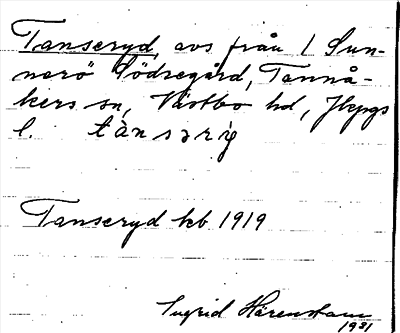 Tanseryd, avs från 1 Sun-
nerö Södregård, Tannå-
kers sn, Västbo hd, Jkpgs
l. tànsərìg
Tanseryd kb 1919
Ingrid Härenstam
1931